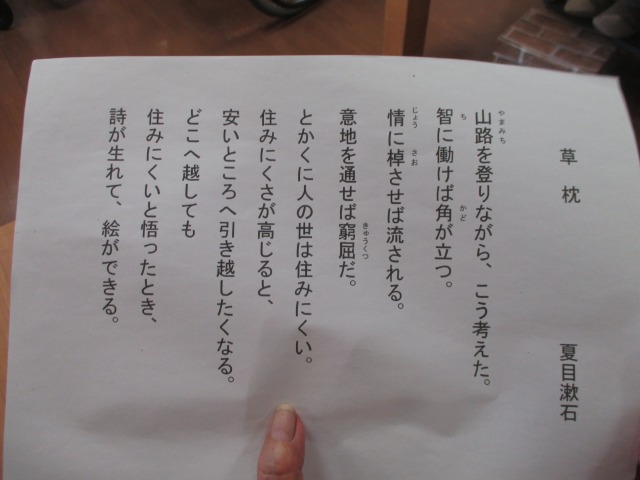 草枕
夏目漱石
山路を登りながら、こう考えた。
智に働けば角が立つ。
情に棹させば流される。
意地を通せば窮屈だ。
とかくに人の世は住みにくい。
住みにくさが高じると、
安いところへ引き越したくなる。
どこへ越しても
住みにくいと悟ったとき、
詩が生れて、絵ができる。